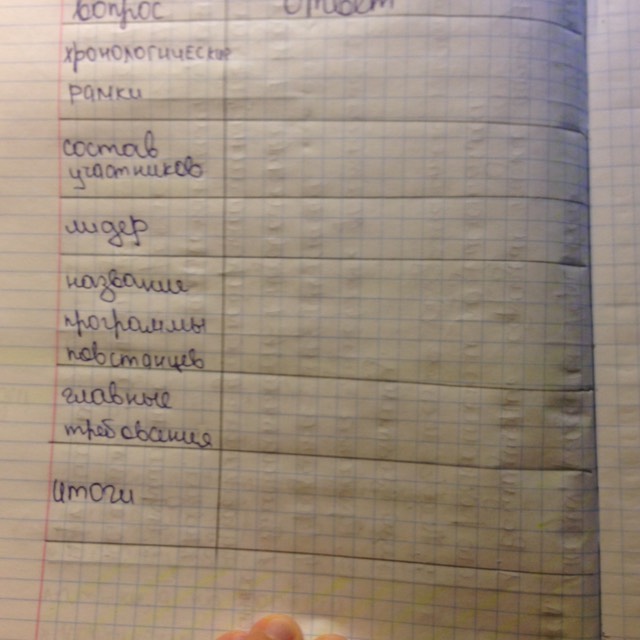 вопрос ответ
хронологические
рамки
состав
участников
лидер
название
программы
повстанцев
главные
требование
итоги